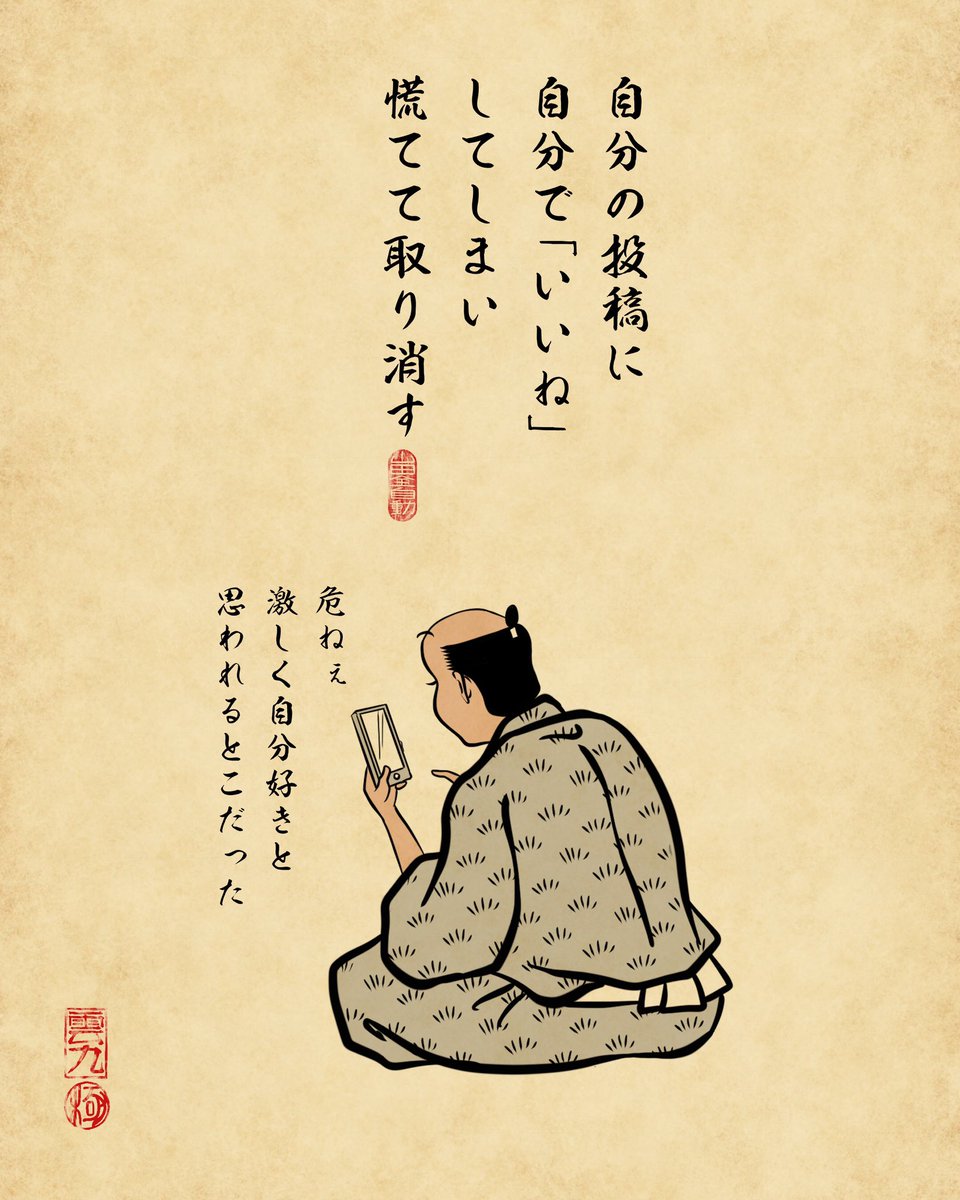 自分の投稿に
自分で「いいね」
してしまい
慌てて取り消す
危ねぇ
激しく自分好きと
思われるとこだった